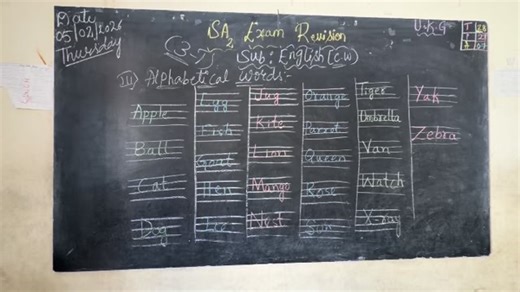 Date
05/02/2026
Thursday
SA2 Exam Revision
U.K.G
Sub: English (C.W)
III) Alphabetical Words:-
Apple
Ball
Cat
Dog
Egg
Fish
Goat
Hen
Jug
Kite
Lion
Mango
Nest
Orange
Parrot
Queen
Rose
Sun
Tiger
Umbrella
Van
Watch
X-ray
Yak
Zebra